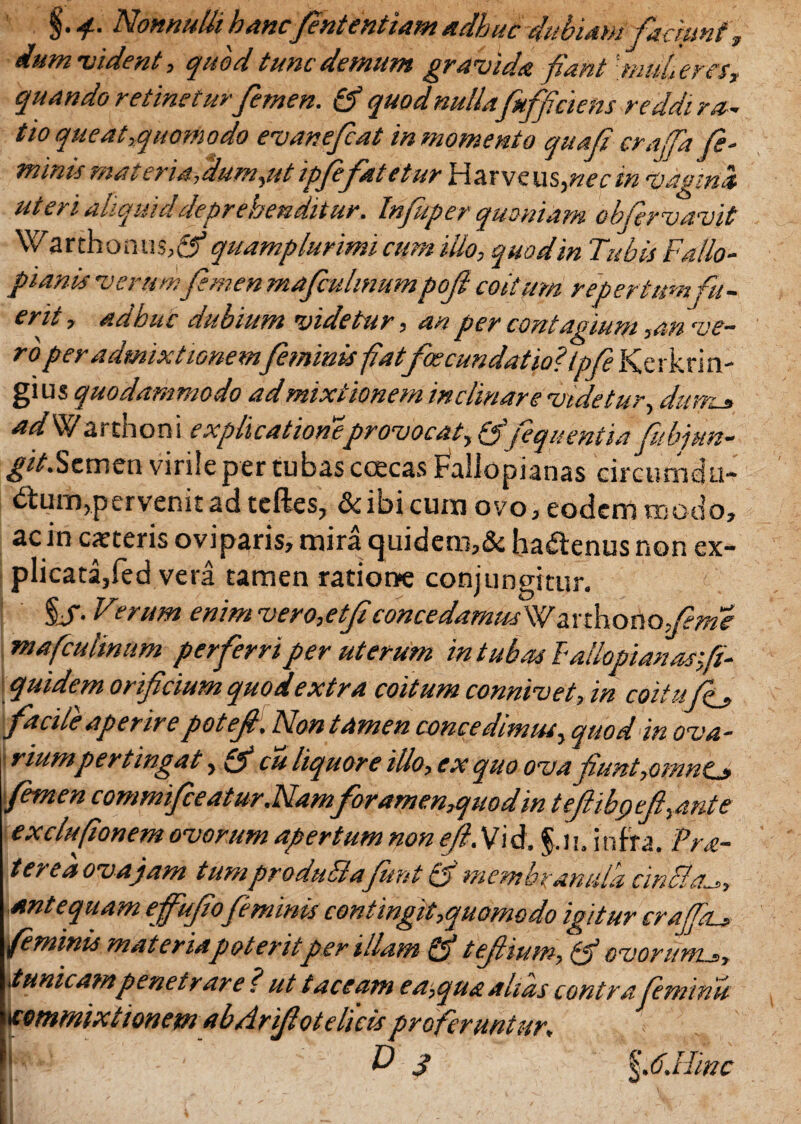 §. 4. Nonnulli hanc ſententiam adhuc dubiam faciunt,
dum vident, quòd tunc demum gravidæ fiant mulieres,
quando retinetur ſemen. & quod nulla ſufficiens reddi ra-
tio queat, quomodo evaneſcat in momento quaſi craſſa ſe-
minis materia, dum, ut ipſe fatetur Harveus, nec in vaginâ
uteri aliquid deprehenditur. Inſuper quoniam obſervavit
Warthonus, & quamplurimi cum illo, quod in Tubis Fallo-
pianis verum ſemen maſculinum poſt coitum repertum fu-
erit, adhuc dubium videtur, an per contagium, an ve-
rò per admixtionem ſeminis fiat fœcundatio? ipſe Kerkrin-
gius quodammodo ad mixtionem inclinare videtur, dum
ad Warthoni explicationē provocat, & ſequentia ſubjun-
git. Semen virile per tubas cœcas Fallopianas circumdu-
ctum, pervenit ad teſtes, & ibi cum ovo, eodem modo,
ac in cæteris oviparis, mirâ quidem, & hactenus non ex-
plicatâ, ſed verâ tamen ratione conjungitur.
§. 5. Verum enim vero, etſi concedamus Warthono, ſemē
maſculinum perferri per uterum in tubas Fallopianas; ſi-
quidem orificium quod extra coitum connivet, in coitu ſe
facile aperire poteſt. Non tamen concedimus, quod in ova-
rium pertingat, & cū liquore illo, ex quo ova fiunt, omne
ſemen commiſceatur. Nam foramen, quod in teſtibꝰ eſt, ante
excluſionem ovorum apertum non eſt. Vid. §. 11. infra. Præ-
terea ova jam tum producta ſunt & membranulâ cincta,
antequam effuſio ſeminis contingit, quomodo igitur craſſa
ſeminis materia poterit per illam & teſtium, & ovorum,
tunicam penetrare? ut taceam ea, quæ aliàs contra ſeminū
commixtionem ab Ariſtotelicis proferuntur.
D 3 §. 6. Hinc